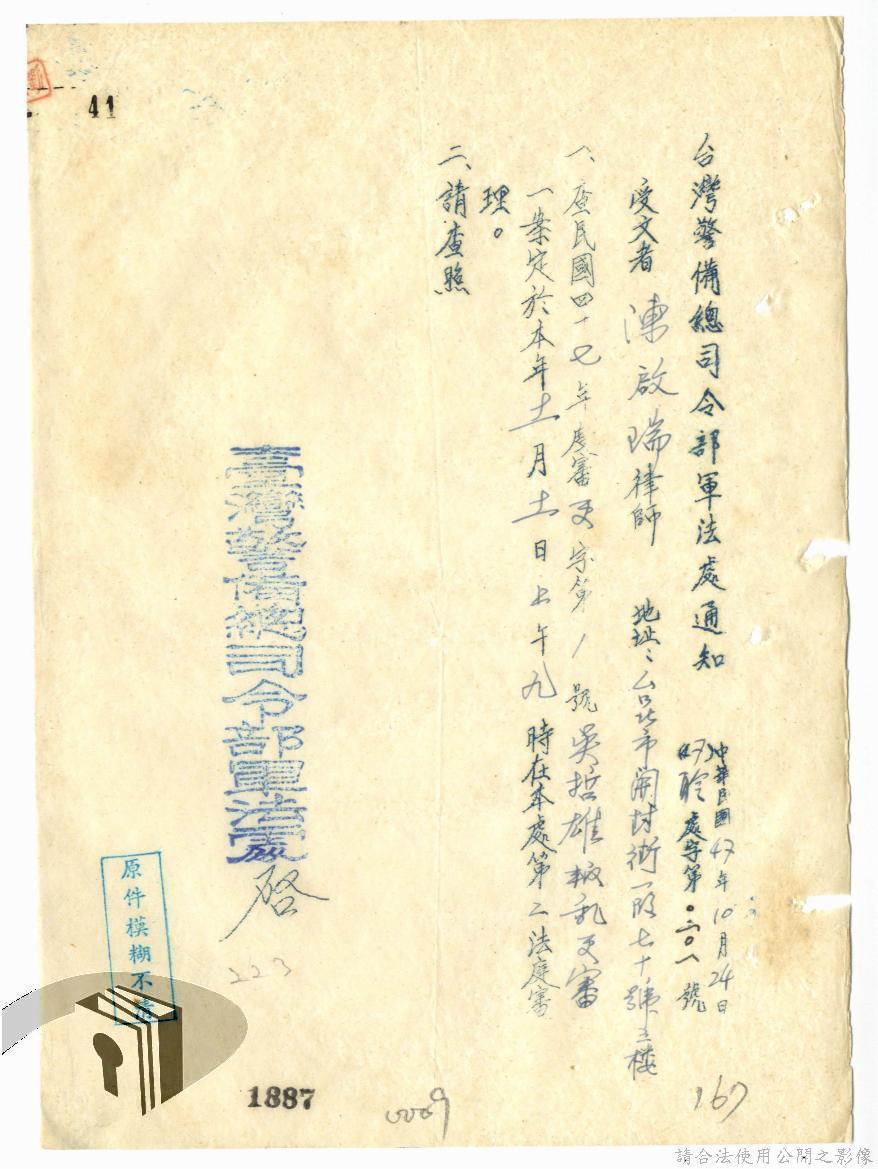 台灣警備總司令部軍法處通知
中華民國47年10月24日
(47)聆處字第〇二〇八號
受文者 陳啟瑞律師 地址:台北市開封街一段七十號三樓
一、查民國四十七年度審更字第1號吳哲雄叛亂更審
一案定於本年十一月十一日上午九時在本處第二法庭審
理。
二、請查照
臺灣警備總司令部軍法處
啓
41
原件模糊不清
223
1887
0009
167
請合法使用公開之影像